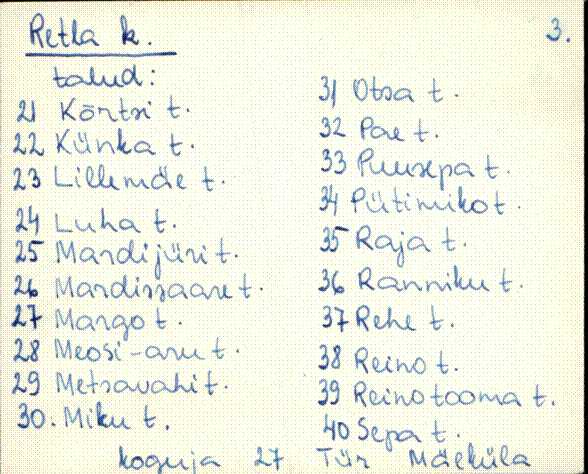 Retla k.
3.
talud:
21 Kõrtsi t.
22 Künka t.
23 Lillemäe t.
24 Luha t.
25 Mardijüri t.
26 Mardissaare t.
27 Margo t.
28 Meosi-aru t.
29 Metsavahi t.
30. Miku t.
31 Otsa t.
32 Pae t.
33 Puusepa t.
34 Pütimiko t.
35 Raja t.
36 Ranniku t.
37 Rehe t.
38 Reino t.
39 Reinotooma t.
40 Sepa t.
koguja 27 Tür Mäeküla